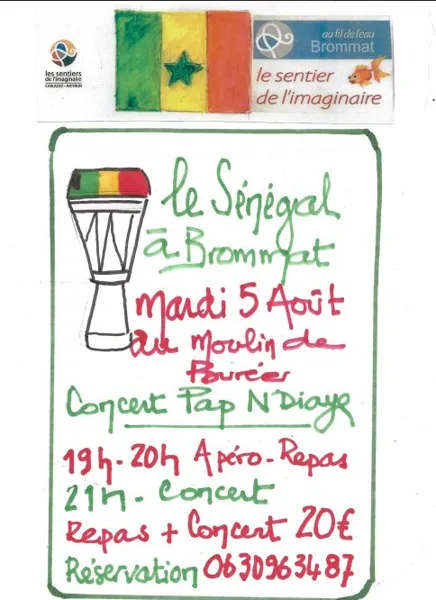 les sentiers
de l'imaginaire
CARLADEZ - AVEYRON
au fil de l'eau
Brommat
le sentier
de l'imaginaire
le Sénégal
à Brommat
Mardi 5 Août
au Moulin de
Bourées
Concert Pap N'Diaye
19h - 20h Apéro - Repas
21h - Concert
Repas + Concert 20€
Réservation 0630963487